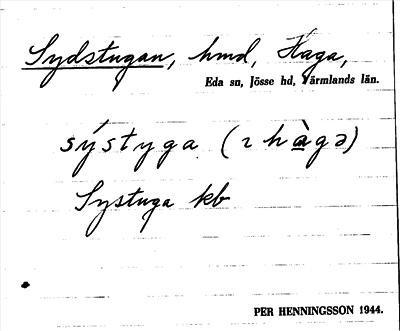 Sydstugan, hmd, Haga,
Eda sn, Jösse hd, Värmlands län.
sýstyga (ı hàgə)
Systuga kb
PER HENNINGSSON 1944.